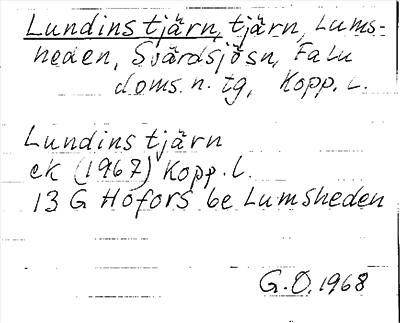 Lundins tjärn, tjärn, Lums=
heden, Svärdsjösn, Falu
doms. n. tg, Kopp. l.
Lundins tjärn
ek (1967) Kopp. l.
13 G Hofors 6e Lumsheden
G.O. 1968